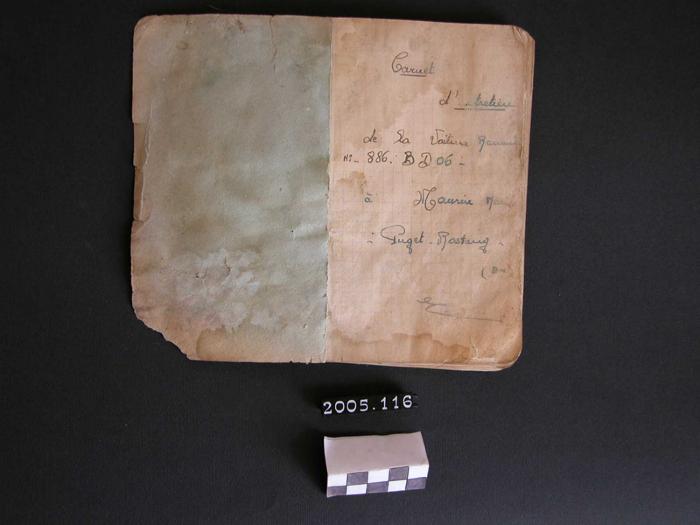 Carnet
d'
de la Voiture
N°- 886. BD 06 -
à Maurice
à Puget-Rostang -
2005.116